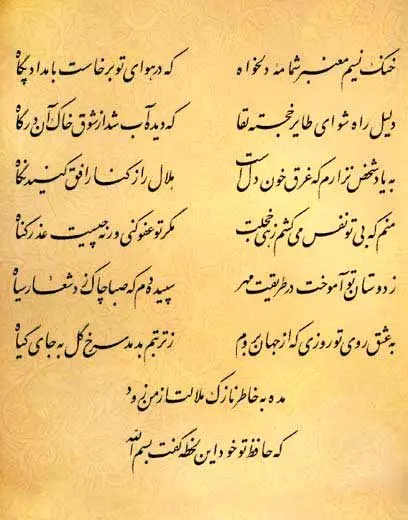 خنک نسیم معنبر شمامهٔ دلخواه که در هوای تو برخاست بامداد پگاه
دلیل راه شو ای طایر خجسته لقا که دیده آب شد از شوق خاک آن درگاه
به یاد شخص نزارم که غرق خون دل است هلال را ز کنار افق کنید نگاه
منم که بی تو نفس می کشم زهی خجلت مگر تو عفو کنی ورنه چیست عذر گناه
ز دوستان تو آموخت در طریقت مهر سپیده دم که صبا چاک زد شعار سیاه
به عشق روی تو روزی که از جهان بروم ز تربتم بدمد سرخ گل به جای گیاه
مده به خاطر نازک ملالت از من زود
که حافظ تو خود این لحظه گفت بسم الله